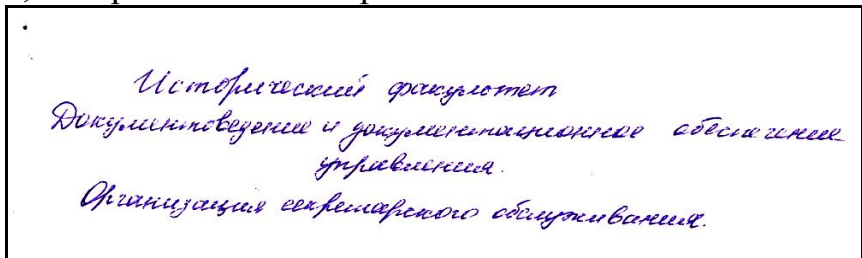 Исторический факультет
Документоведение и документационное обеспечение
управления.
Организация секретарского обслуживания.